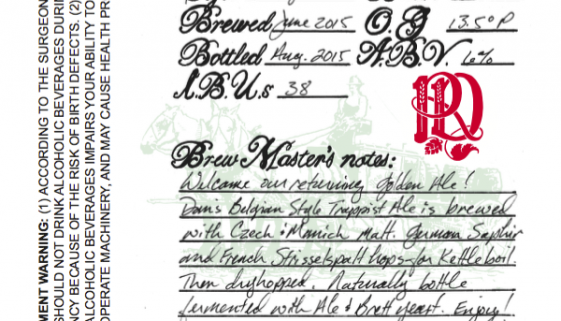 Brewed June 2015 O.G 13.5° P
Bottled Aug. 2015 A.B.V. 6%
I.B.U.s 38
PRD
Brew Master's notes:
Welcome our returning Golden Ale!
Dom's Belgian Style Trappist Ale is brewed
with Czech & Munich Malt. German Saphir
and French Strisselspalt hops for Kettleboil.
Then dryhopped. Naturally bottle
fermented with Ale & Brett yeast. Enjoy!
MENT WARNING: (1) ACCORDING TO THE SURGEON
SHOULD NOT DRINK ALCOHOLIC BEVERAGES DURI
NCY BECAUSE OF THE RISK OF BIRTH DEFECTS. (2)
ALCOHOLIC BEVERAGES IMPAIRS YOUR ABILITY TO
OPERATE MACHINERY, AND MAY CAUSE HEALTH PR